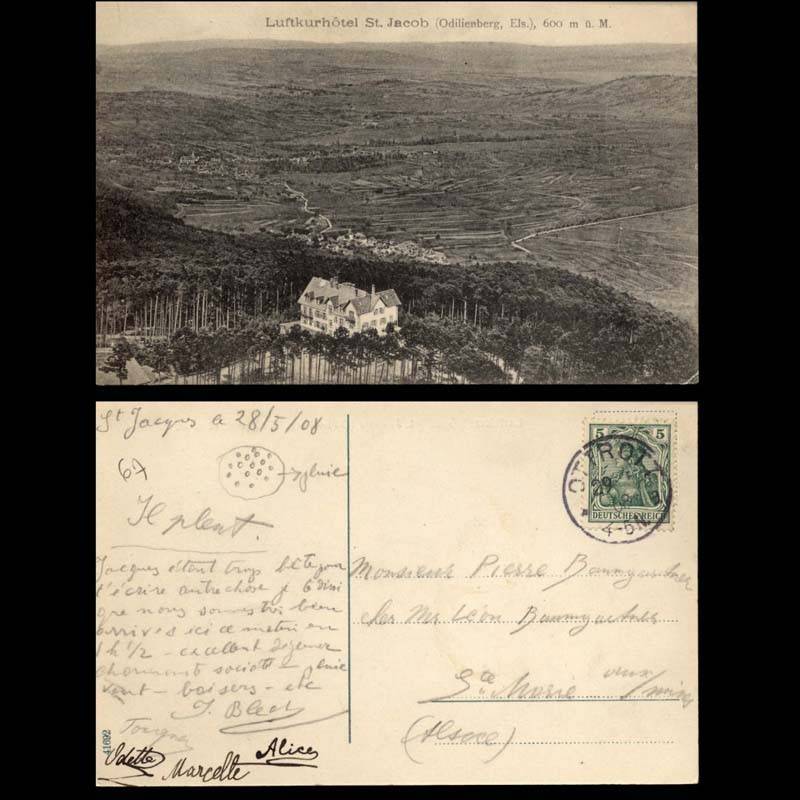 Luftkurhôtel St. Jacob (Odilienberg, Els.), 600 m ü. M.
St Jacques le 28/5/08
67
pluie
Il pleut.
Jacques étant trop bête pour
t'écrire autre chose je
que nous sommes très bien
arrivés ici ce matin en
1 h 1/2 - excellent déjeuner
charmante société - pluie
vent - baisers - etc
J. Blech
Odette
Marcelle
Alice
41692
5 5
DEUTSCHES REICH
OTTROTT
29
08
4-5N
Monsieur Pierre Baumgartner
chez Mr Léon Baumgartner
Ste Marie aux/mines
(Alsace)